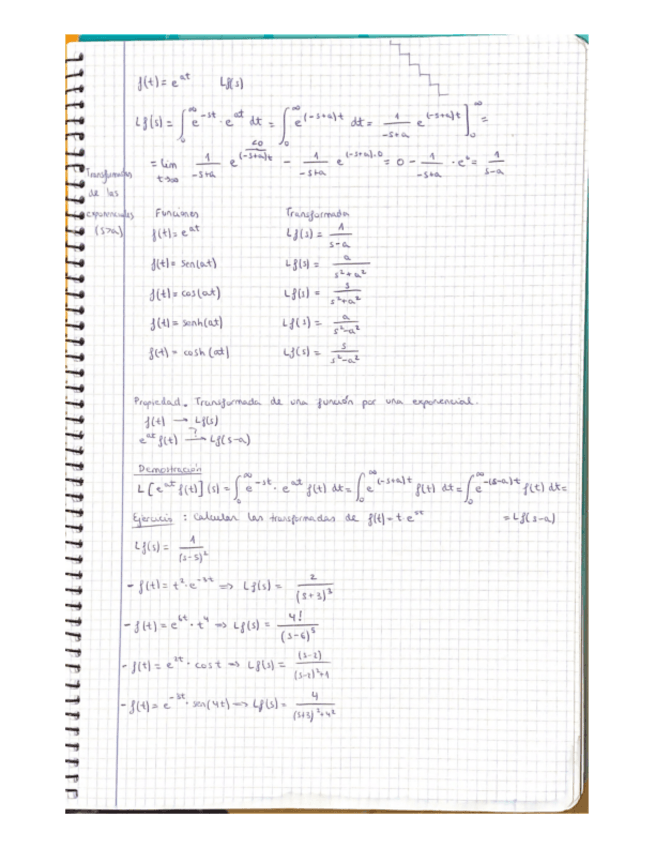 f(t) = e^{at}   Lf(s)
Lf(s) = ∫_0^∞ e^{-st} · e^{at} dt = ∫_0^∞ e^{(-s+a)t} dt = 1/(-s+a) e^{(-s+a)t} ]_0^∞ =
= lim_{t→∞} 1/(-s+a) e^{(-s+a)t} - 1/(-s+a) e^{(-s+a)·0} = 0 - 1/(-s+a) · e^0 = 1/(s-a)
<0
Transformadas
de las
exponenciales
(s>a)
Funciones   Transformada
f(t) = e^{at}   Lf(s) = 1/(s-a)
f(t) = sen(at)   Lf(s) = a/(s²+a²)
f(t) = cos(at)   Lf(s) = s/(s²+a²)
f(t) = senh(at)   Lf(s) = a/(s²-a²)
f(t) = cosh(at)   Lf(s) = s/(s²-a²)
Propiedad. Transformada de una función por una exponencial.
f(t) → Lf(s)
e^{at} f(t) →? Lf(s-a)
Demostración
L[e^{at} f(t)](s) = ∫_0^∞ e^{-st} · e^{at} f(t) dt = ∫_0^∞ e^{(-s+a)t} f(t) dt = ∫_0^∞ e^{-(s-a)t} f(t) dt =
= Lf(s-a)
Ejercicio : Calcular las transformadas de f(t) = t e^{5t}
Lf(s) = 1/(s-5)²
- f(t) = t² · e^{-3t} ⇒ Lf(s) = 2/(s+3)³
- f(t) = e^{6t} · t⁴ ⇒ Lf(s) = 4!/(s-6)⁵
- f(t) = e^{2t} · cos t ⇒ Lf(s) = (s-2)/((s-2)²+1)
- f(t) = e^{-3t} · sen(4t) ⇒ Lf(s) = 4/((s+3)²+4²)